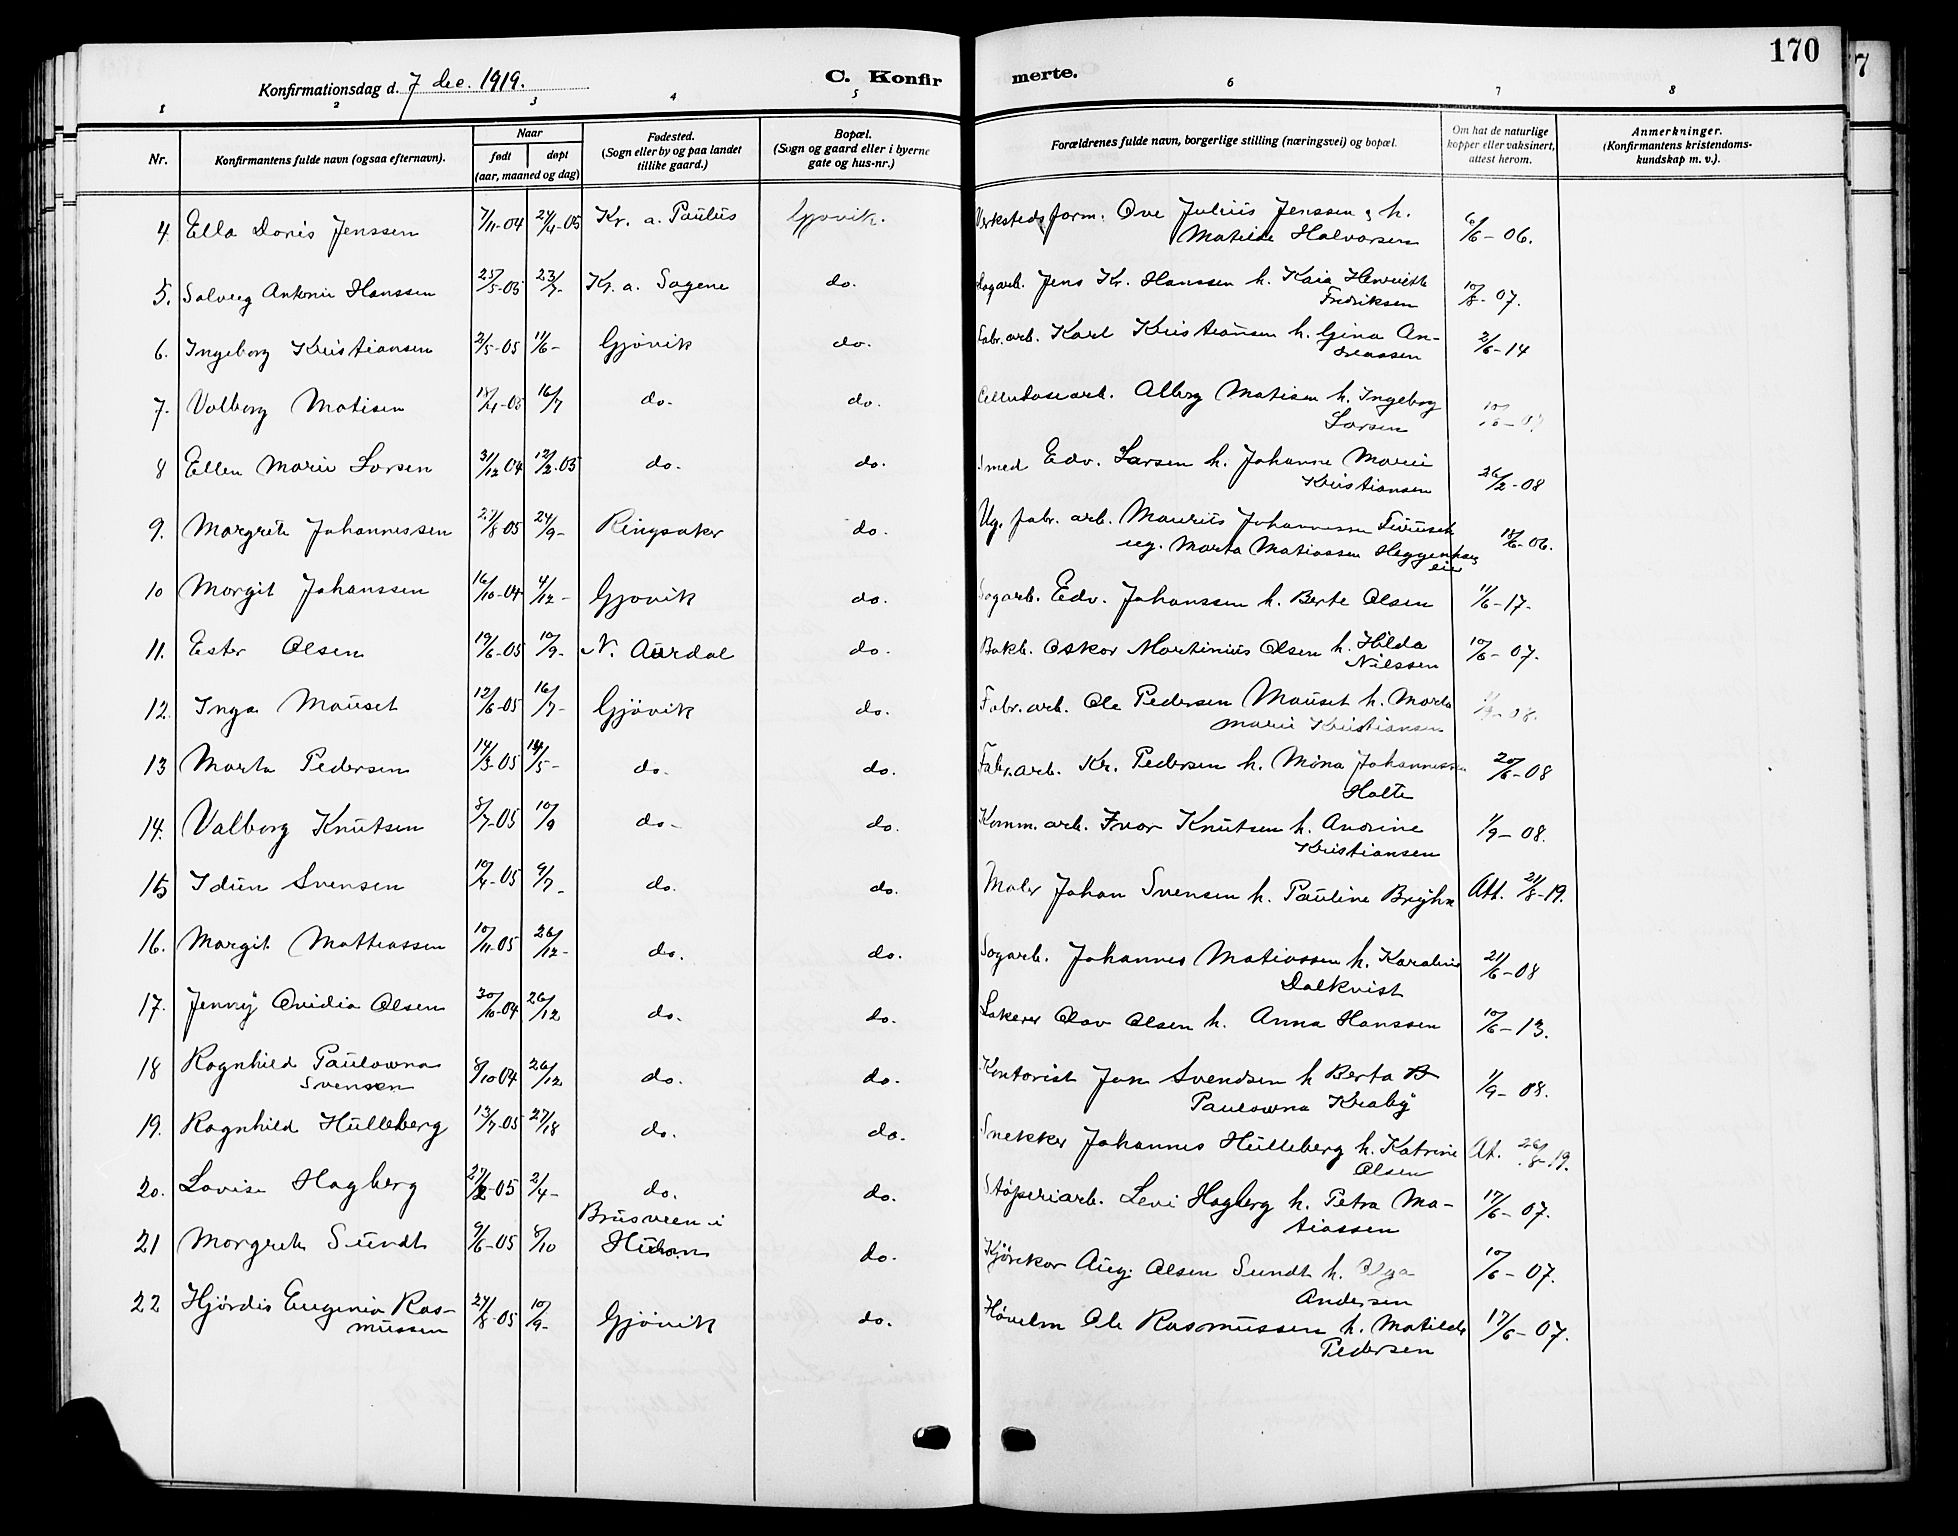 170
7
Konfirmationsdag d. 7 dec. 1919.
C. Konfir
merte.
1 2 3 4 5 6 7 8
Nr.
Konfirmantens fulde navn (ogsaa efternavn).
Naar
født døpt
(aar, maaned og dag)
Fødested.
(Sogn eller by og paa landet
tillike gaard.)
Bopæl.
(Sogn og gaard eller i byerne
gate og hus-nr.)
Forældrenes fulde navn, borgerlige stilling (næringsvei) og bopæl.
Om hat de naturlige
kopper eller vaksinert,
attest herom.
Anmerkninger.
(Konfirmantens kristendoms-
kundskap m. v.).
4. Ella Doris Jenssen 7/11-04 24/4-05 Kr. a. Paulus Gjøvik. Verkstedsform. Ove Julius Jenssen og h. 6/6-06.
Matilde Halvorsen
5. Solveig Antonie Hanssen 25/5-05 23/7- Kr. a. Sagene do. Jens Kr. Hanssen h. Kaia Henriette 10/8-07.
Fredriksen
6. Ingeborg Kristiansen 2/5-05 11/6- Gjøvik do. Fabr. arb. Karl Kristiansen h. Gina An- 2/6-14
dreassen
7. Valborg Matisen 18/4-05 16/7 do. do. Cellulosearb. Alberg Matisen h. Ingeborg
Larsen
8 Ellen Marie Larsen 31/12 04 12/2-05 do. do. Smed Edv. Larsen h. Johanne Marie 26/2-08
Kristiansen
9. Margrete Johannessen 27/8 05 24/9- Ringsaker do. Ug. fabr. arb. Maurits Johannessen 18/6-06.
ug. Marta Matiassen Heggenhaug
eie
10 Margit Johanssen 16/10-04 4/12- Gjøvik do. Sagarb. Edv. Johanssen h. Berte Olsen 11/6-17-
11. Ester Olsen 19/6-05 10/9- N. Aurdal do. Bokb. Oskar Martinius Olsen h. Hilda 10/6-07.
Nilssen
12. Inga Mauset 12/6-05 16/7- Gjøvik do. Fabr. arb. Ole Pedersen Mauset h. Marta
Marie Kristiansen
13 Marta Pedersen 14/3-05 14/5- do. do. Fabr. arb. Kr. Pedersen h. Mina Johannessen 20/6-08
Holte
14. Valborg Knutsen 8/7-05 10/9 do- do. Komm. arb. Ivar Knutsen h. Andrine 1/9-08.
Kristiansen
15 Idun Svensen 10/4-05 9/7- do. do. Maler Johan Svensen h. Pauline Bryhn Att. 21/8-19.
16. Margit Mattiassen 10/11-05 26/12- do. do. Sagarb. Johannes Matiassen h. Karoline 21/6-08
Dalkvist
17. Jenny Ovidia Olsen 30/10-04 26/12 do. do. Lakerer Olav Olsen h. Anna Hanssen 10/6-13.
18 Ragnhild Paulowna 8/10 04 26/12 do. do. Kontorist Jon Svendsen h Berta 1/9-08.
Svensen Paulowna Kraby
19. Ragnhild Hulleberg 13/7-05 27/18 do. do. Snekker Johannes Hulleberg h. Katrine At. 26/8-19.
Olsen
20. Lovise Hagberg 27/2-05 2/4- do. do. Støperiarb. Levi Hagberg h. Petra Ma- 17/6-07.
tiassen
21 Margrete Sundt 9/6-05 8/10 Brusveen i
Hunn do. Kjørekar Aug. Olsen Sundt h. Olga 10/6-07.
Andersen
22 Hjørdis Eugenia Ras- 24/8-05 10/9- Gjøvik do. Høvelm Ole Rasmussen h. Matilde 17/6-07.
mussen Pedersen